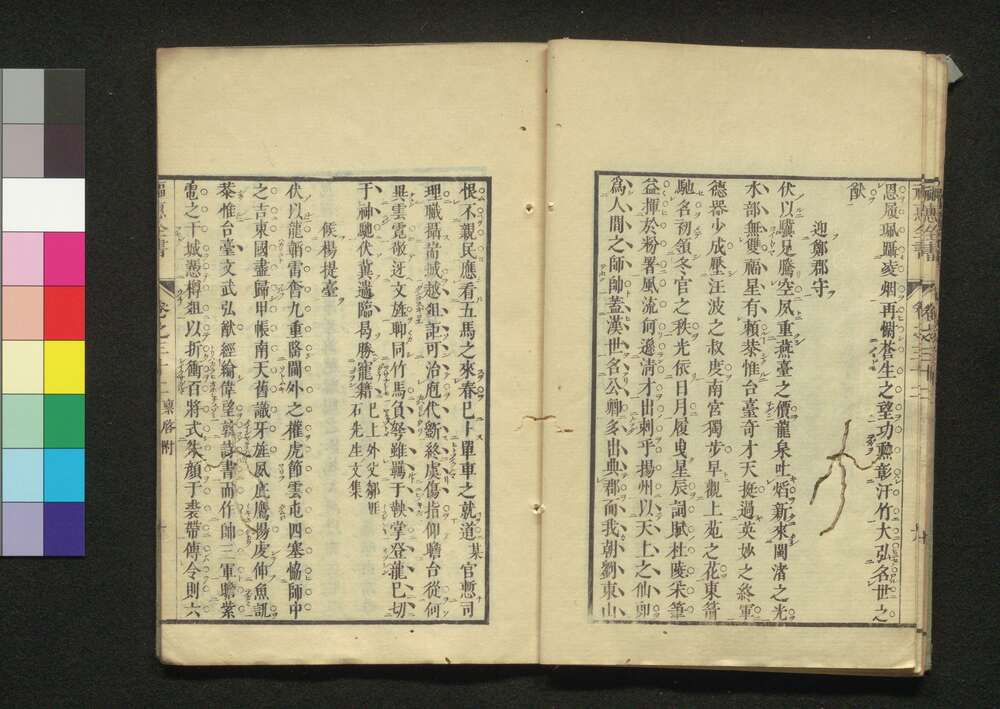 恩屢珮驪凌烟再慰蒼生之望功勲彰汗竹大弘名世之
猷
迎鄭郡守
伏以驥足騰空夙重燕臺之價龍泉吐焰新來閩渚之光
水部無雙福星有賴恭惟台臺奇才天挺過英妙之終軍
德器少成壓汪波之叔度南宮獨步早觀上苑之花東箭
馳名初領冬官之秩光依日月履曳星辰詞賦杜陵朵筆
益揮於粉署風流何遜淸才出刺乎揚州以天上之仙郎
爲人間之師帥蓋漢世名公卿多出典郡而我朝劉東山
恨不親民應看五馬之來春已卜單車之就道某官慙司
理職攝嵓城越俎詎可治庖代斵終虞傷指仰瞻台從何
異雲霓敬迓文旌聊同竹馬負弩雖羈于鞅掌登龍已切
于神馳伏冀遄臨曷勝寵藉
已上外父鄒匪
石先生文集
候楊提臺
伏以龍韜雷令九重隆閫外之權虎節雲屯四塞恊師中
之吉東國盡歸甲帳南天舊識牙旌夙庇鷹揚虔伸魚訊
恭惟台臺文武弘猷經綸偉望敦詩書而作帥三軍瞻紫
電之干城憑樽俎以折衝百將式朱顏于裘帶傳令則六
福惠全書
卷之三十二
稟啓附